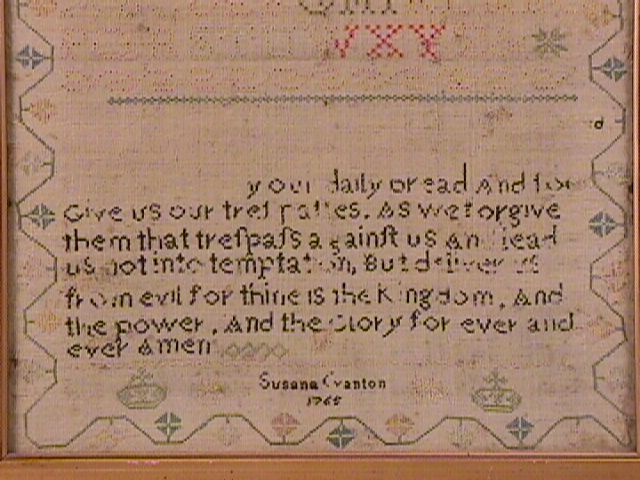 VXY
d
your daily bread And for
Give us our treſpaſſes. As we forgive
them that treſpaſs againſt us And lead
us not into temptation, But deliver us
from evil for thine is the Kingdom, And
the power, And the Glory for ever and
ever Amen
Susana Cranton
1765